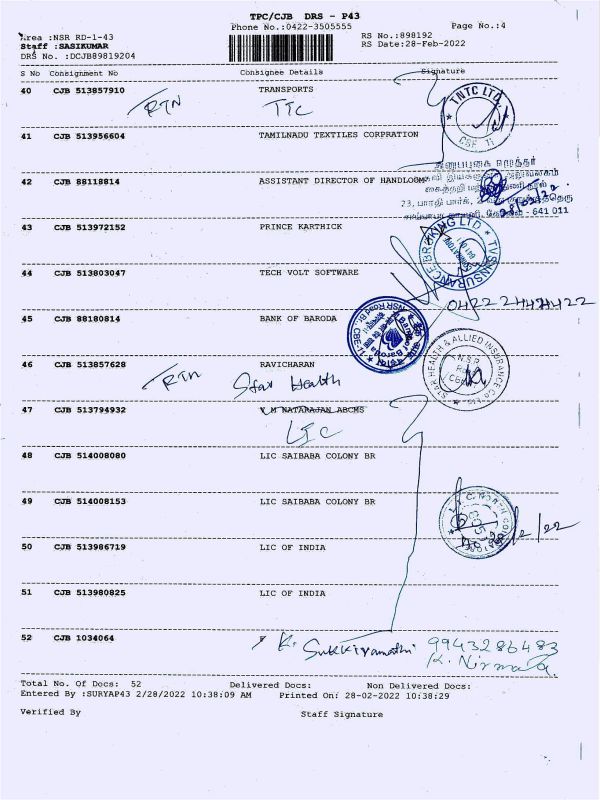 TPC/CJB DRS - P43
Phone No.:0422-3505555
Page No.:4
Area :NSR RD-1-43
RS No.:898192
Staff :SASIKUMAR
RS Date:28-Feb-2022
DRS No. :DCJB89819204
S No Consignment No Consignee Details Signature
40 CJB 513857910 TRANSPORTS
RTN
TNTC LTD.
CSF 11
41 CJB 513956604 TAMILNADU TEXTILES CORPRATION
42 CJB 88118814 ASSISTANT DIRECTOR OF HANDLOOM
641 011
43 CJB 513972152 PRINCE KARTHICK
TVS INSURANCE BROKING LTD
44 CJB 513803047 TECH VOLT SOFTWARE
45 CJB 88180814 BANK OF BARODA
Bank of Baroda
NSR Road Br.
46 CJB 513857628 RAVICHARAN
RTN Star Health
STAR HEALTH & ALLIED INSURANCE Co
N.S.R
Road
47 CJB 513794932 V M NATARAJAN ABCMS
LIC
48 CJB 514008080 LIC SAIBABA COLONY BR
49 CJB 514008153 LIC SAIBABA COLONY BR
50 CJB 513986719 LIC OF INDIA
51 CJB 513980825 LIC OF INDIA
52 CJB 1034064
9943286483
K. Nirmala
Total No. Of Docs: 52 Delivered Docs: Non Delivered Docs:
Entered By :SURYAP43 2/28/2022 10:38:09 AM Printed On: 28-02-2022 10:38:29
Verified By Staff Signature